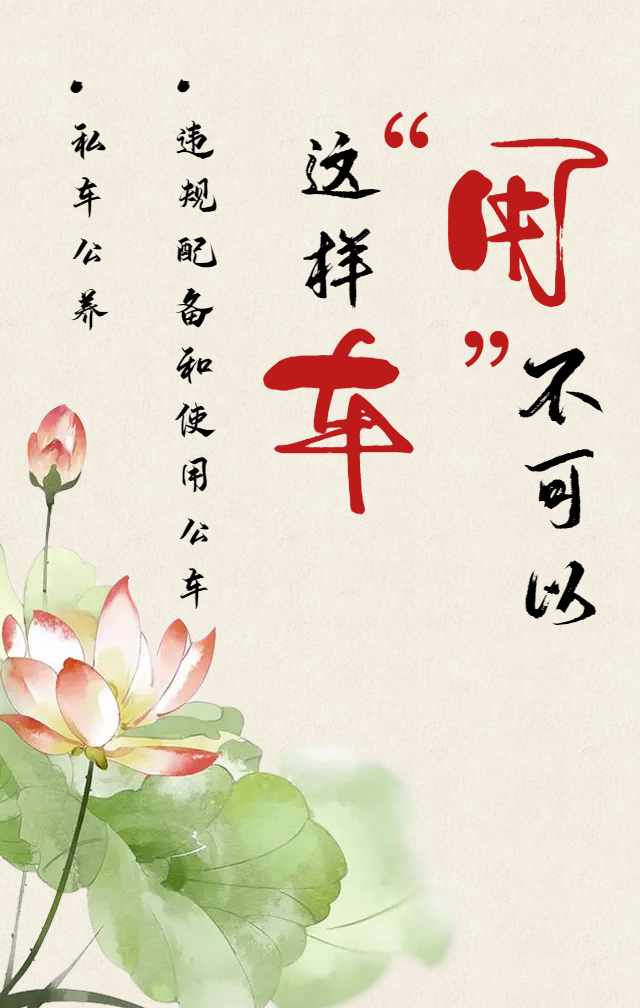 这样
“用”
车
不可以
• 违规配备和使用公车
• 私车公养